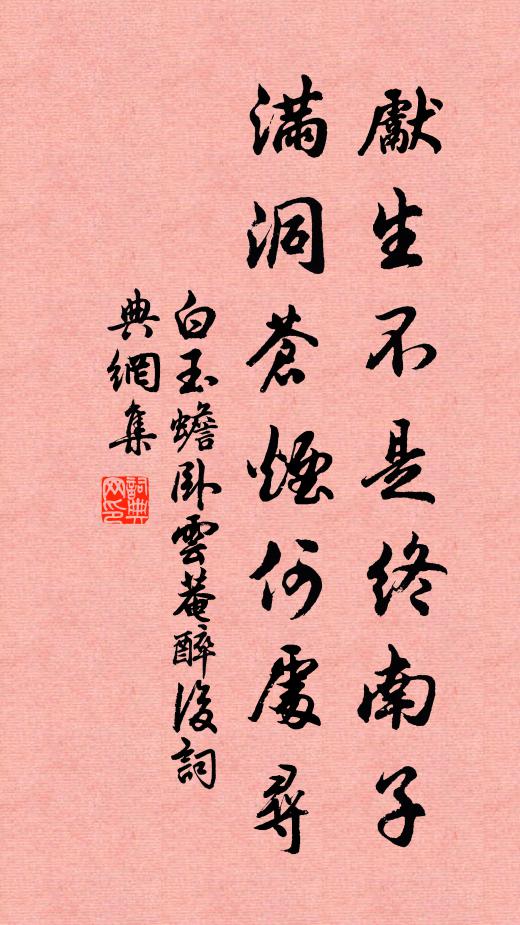 獻生不是終南子
滿洞蒼煙何處尋
白玉蟾臥雲菴醉後詞
典網集
詞典網印